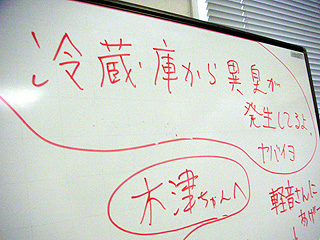 冷蔵庫から異臭が
発生してるよ
ヤバイヨ
木津ちゃんへ
軽音さんに
あげ